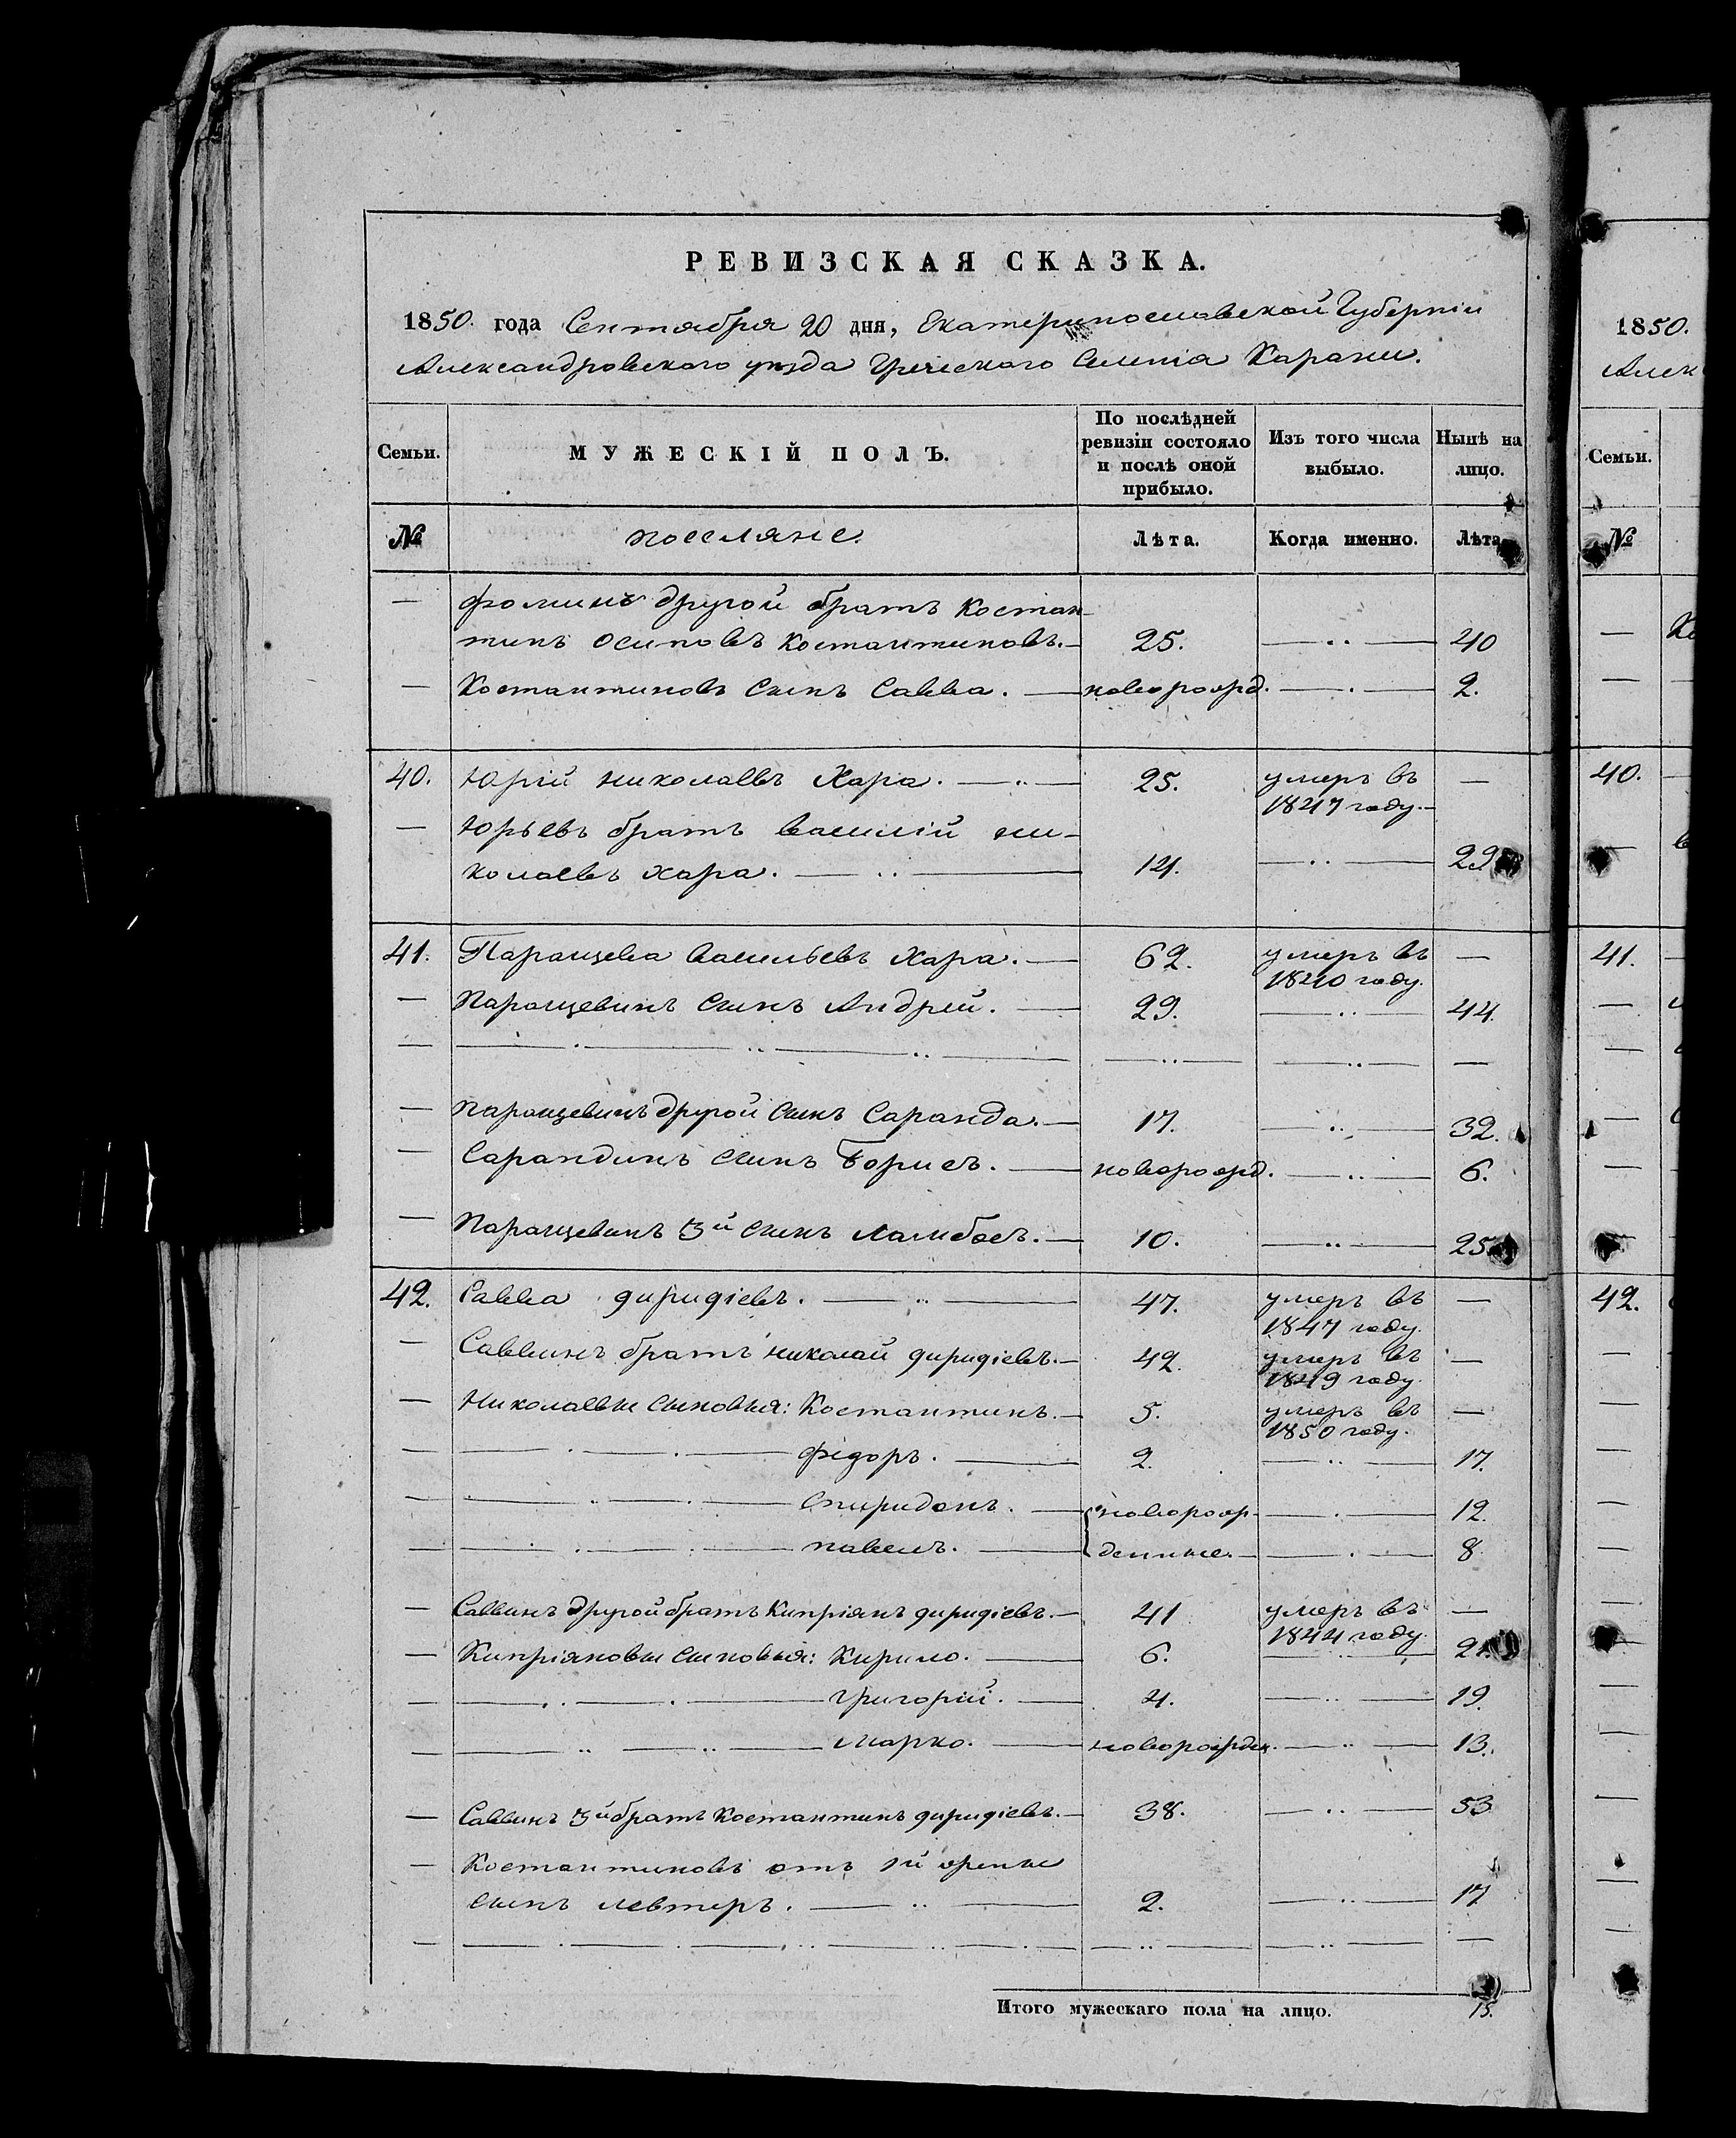 РЕВИЗСКАЯ СКАЗКА.
1850. года Сентября 20 дня, Екатеринославской Губерніи
Александровскаго уезда Греческого Селенія Карани.
Семьи.
МУЖЕСКІЙ ПОЛЪ.
По послѣдней
ревизіи состояло
и послѣ оной
прибыло.
Изъ того числа
выбыло.
Нынѣ на
лицо.
№
поселяне.
Лѣта.
Когда именно.
Лѣта
— Фоминъ другой братъ Костан
тинъ Осиповъ Костантиновъ. — 25. — 40
— Костантиновъ сынъ Савва. — новорожд. — 2.
40. Юрій Николаевъ Хара. — 25. умеръ въ —
1847 году. —
— Юрьевъ братъ Василій Ни-
колаевъ Хара. — 14. — 29
41. Паращева Васильевъ Хара. — 62. умеръ въ —
1840 году.
— Паращевинъ сынъ Андрей. — 29. — 44.
— Паращевинъ другой сынъ Саранда. — 17. — 32.
— Сарандинъ сынъ Борисъ. — новорожд. — 6.
— Паращевинъ 3й сынъ Ламбосъ. — 10. — 25
42. Савва Диридіевъ. — 47. умеръ въ —
1847 году.
— Саввинъ братъ Николай Диридіевъ. — 42. умеръ въ —
1849 году.
— Николаевы сыновья: Костантинъ. — 5. умеръ въ —
1850 году.
— Фёдоръ. — 2. — 17.
— Спиридонъ. — новорож- — 12.
— Павелъ. — денные. — 8.
— Саввинъ другой братъ Кипріянъ Диридіевъ. — 41 умеръ въ —
1844 году.
— Кипріяновы сыновья: Кирило. — 6. — 21.
— Григорій. — 4. — 19.
— Марко. — новорожден. — 13.
— Саввинъ 3й братъ Костантинъ Диридіевъ. — 38. — 53
— Костантиновъ отъ 1й жены
сынъ Левтеръ. — 2. — 17
Итого мужескаго пола на лицо. 15.
1850.
Алек
Семьи.
№
40.
41.
42.